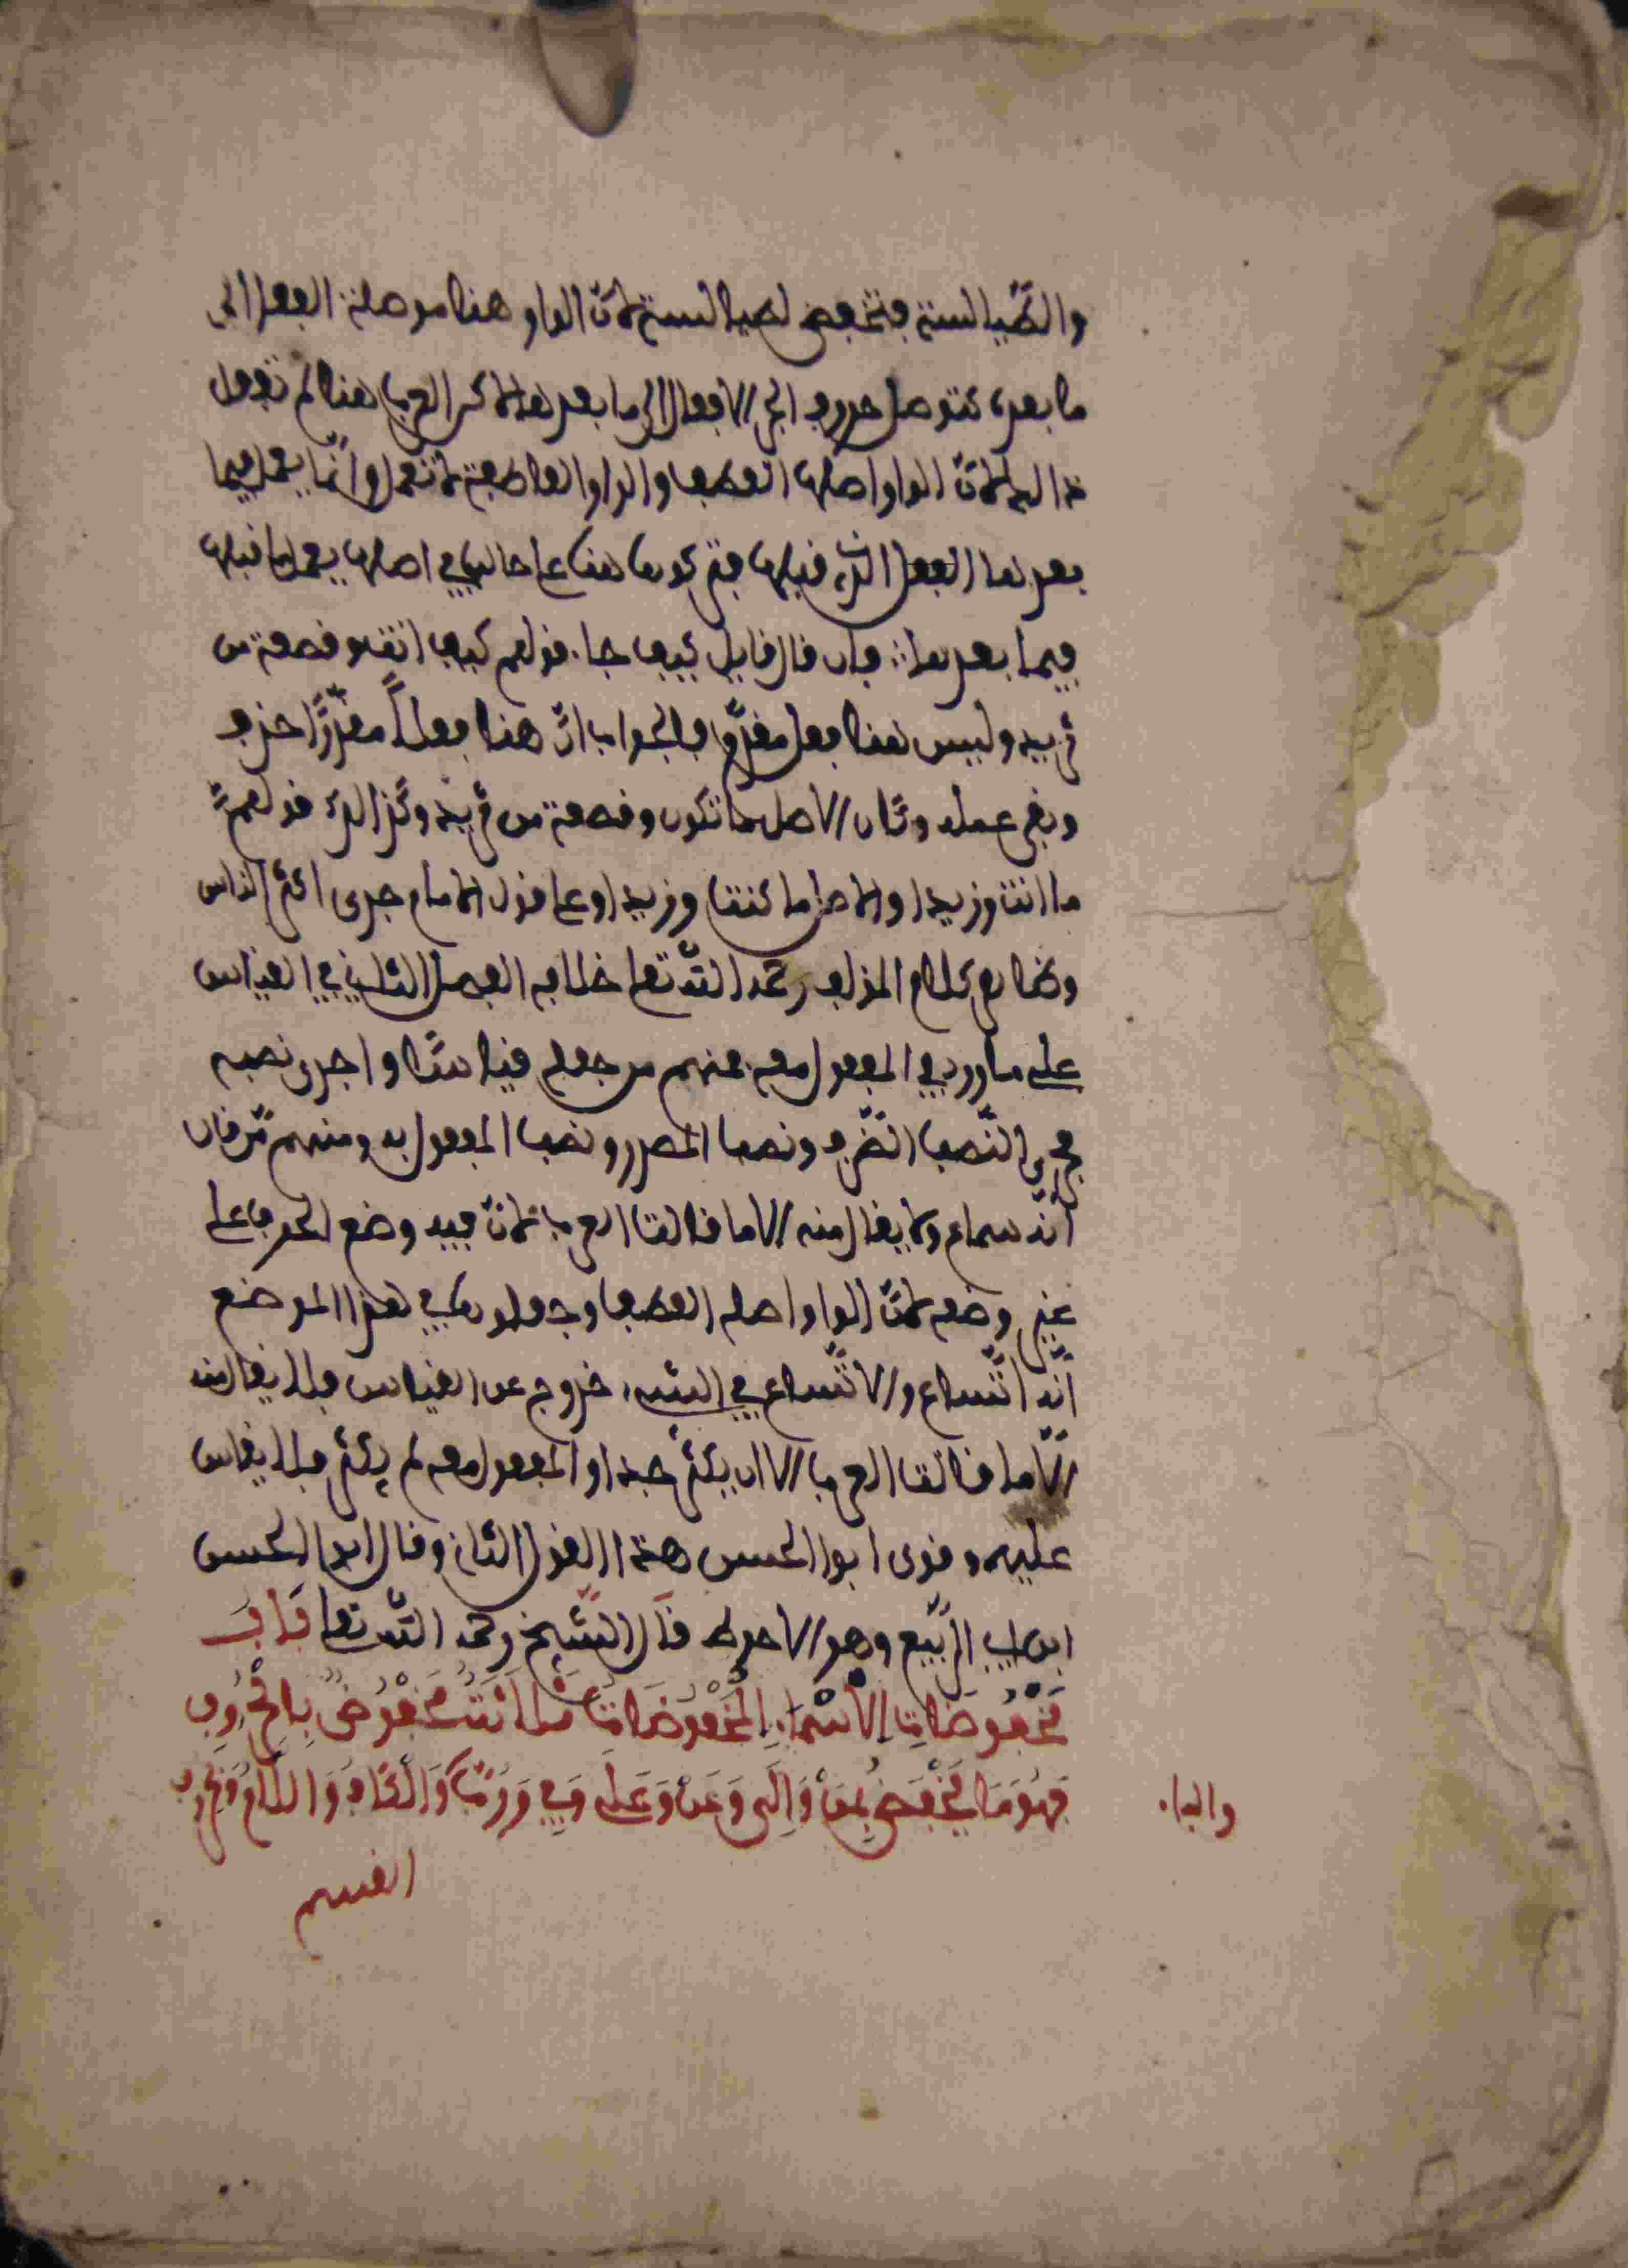 والطيالسة فتخفض لطيالسة لان الواو هنا موصلة الفعل الى
ما بعده كتوصل حروف الجر الافعال الى ما بعدها لاكن العرب هنا لم تعمل
هذا العمل لان الواو اصلها العطف والواو العاطفة لا تعمل وانما يعمل فيما
بعدها الفعل الذي قبلها فتركوها هنا على حالها في اصلها يعمل ما قبلها
فيما بعدها ∴ فان قال قايل كيف جاء قولهم كيف انت وقصعة من
ثريد وليس هنا فعل مقدم فالجواب ان هنا فعلاً مقدرًا حذف
وبقي عمله وكان الاصل ما تكون وقصعة من ثريد وكذالك قولهم
ما انت وزيدا والاصل ما كنت وزيدا وعلى قول الامام جرى اكثر الناس
وظاهر كلام المؤلف رحمه الله تعلى خلافه الفصل الثاني في القياس
على ما ورد في المفعول معه فمنهم من جعله قياسًا واجرى نصبه
مجرى النصب الظرف ونصب المصدر ونصب المفعول به ومنهم من قال
انه سماع ولا يقال منه الا ما قالت العرب لان فيه وضع الحرف على
غير وضعه لان الواو اصله العطف وجعلوها في هذا الموضع
انه اتساع والاتساع في الشيء خروج عن القياس فلا يقال منه
الا ما قالت العرب الا ان يكثر جدا والمفعول معه لم يكثر فلا يقاس
عليه وقوى ابوا الحسن هذا القول الثاني وقال ابوا الحسن
ابن ابي الربيع وهو الاحوط قال الشيخ رحمه الله تعلى بَاب
مَخْفُوضَاتِ الاَسْمَاءِ المَخْفُوضَاتُ ثَلَاثَةٌ مَخْفُوضٌ بِالحُرُوفِ
فَهُوَ مَا يُخْفَضُ بِمِن وَإِلَى وَعَن وَعَلَى وَفِي وَرُبَّ وَالْكَافُ وَاللَّامُ وَحُرُوف
والباء
القسم